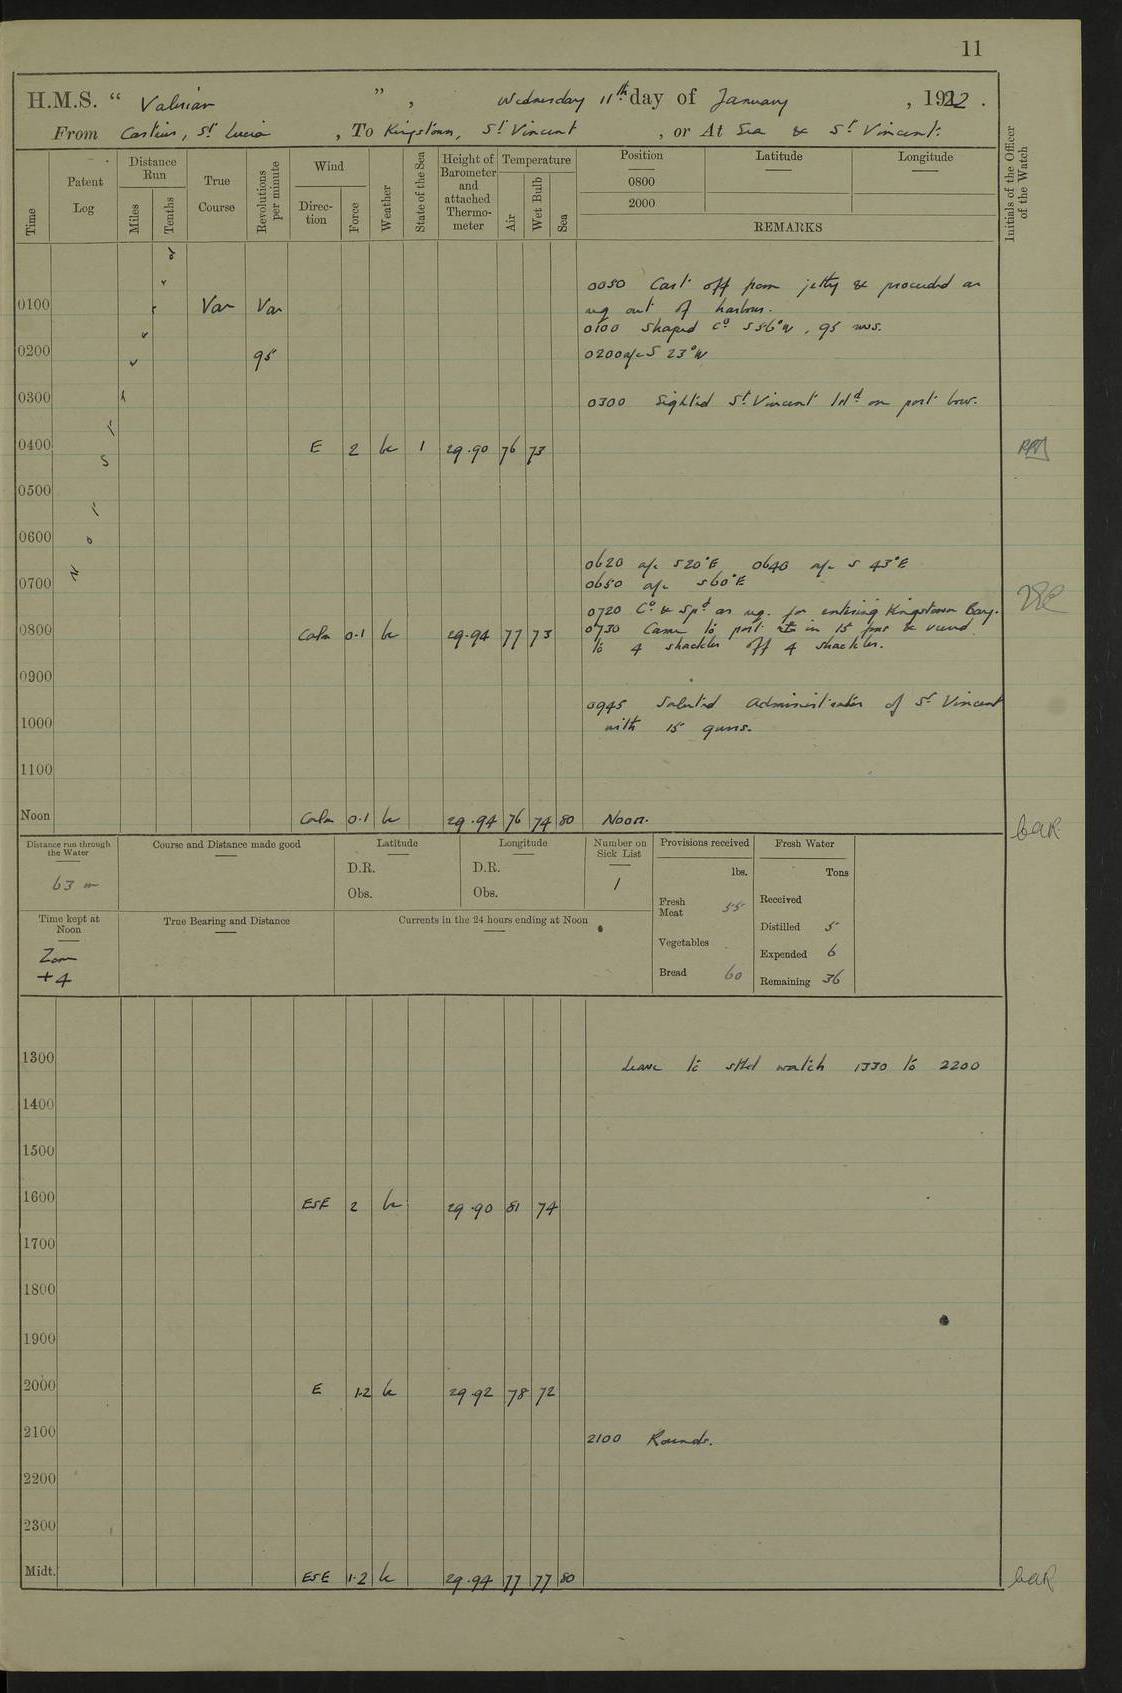 11
H.M.S. “ Valerian ” , Wednesday 11th day of January , 1922 .
From Castries, St Lucia , To Kingstown, St Vincent , or At Sea & St Vincent.
Time
Patent Log
Distance Run
Miles
Tenths
True Course
Revolutions per minute
Wind
Direc-tion
Force
Weather
State of the Sea
Height of Barometer and attached Thermo-meter
Temperature
Air
Wet Bulb
Sea
Position
0800
2000
Latitude
Longitude
REMARKS
Initials of the Officer of the Watch
0050 Cast off from jetty & proceeded as
0100 Var Var req out of harbour.
0100 Shaped Co S56°W, 95 revs.
0200 95 0200 a/c S 23°W
0300 0300 Sighted St Vincent Isld on port bow.
0400 E 2 bc 1 29.90 76 73
0500
0600
0620 a/c S20°E 0640 a/c S 43°E
0700 0650 a/c S60°E
0720 Co & Spd as req. for entering Kingstown Bay.
0800 Calm 0.1 bc 29.94 77 73 0730 Came to port in 15 fms & veered
to 4 shackles off 4 shackles.
0900
0945 Saluted Administrator of St Vincent
1000 with 15 guns.
1100
Noon Calm 0.1 bc 29.94 76 74 80 Noon.
Distance run through the Water
63 m
Course and Distance made good
Latitude
D.R.
Obs.
Longitude
D.R.
Obs.
Number on Sick List
1
Provisions received
lbs.
Fresh Meat 55
Vegetables
Bread 60
Fresh Water
Tons
Received
Distilled 5
Expended 6
Remaining 36
Time kept at Noon
Zone
+4
True Bearing and Distance
Currents in the 24 hours ending at Noon
1300 Leave to stbd watch 1330 to 2200
1400
1500
1600 ESE 2 bc 29.90 81 74
1700
1800
1900
2000 E 1.2 bc 29.92 78 72
2100 2100 Rounds.
2200
2300
Midt. ESE 1.2 bc 29.94 77 77 80